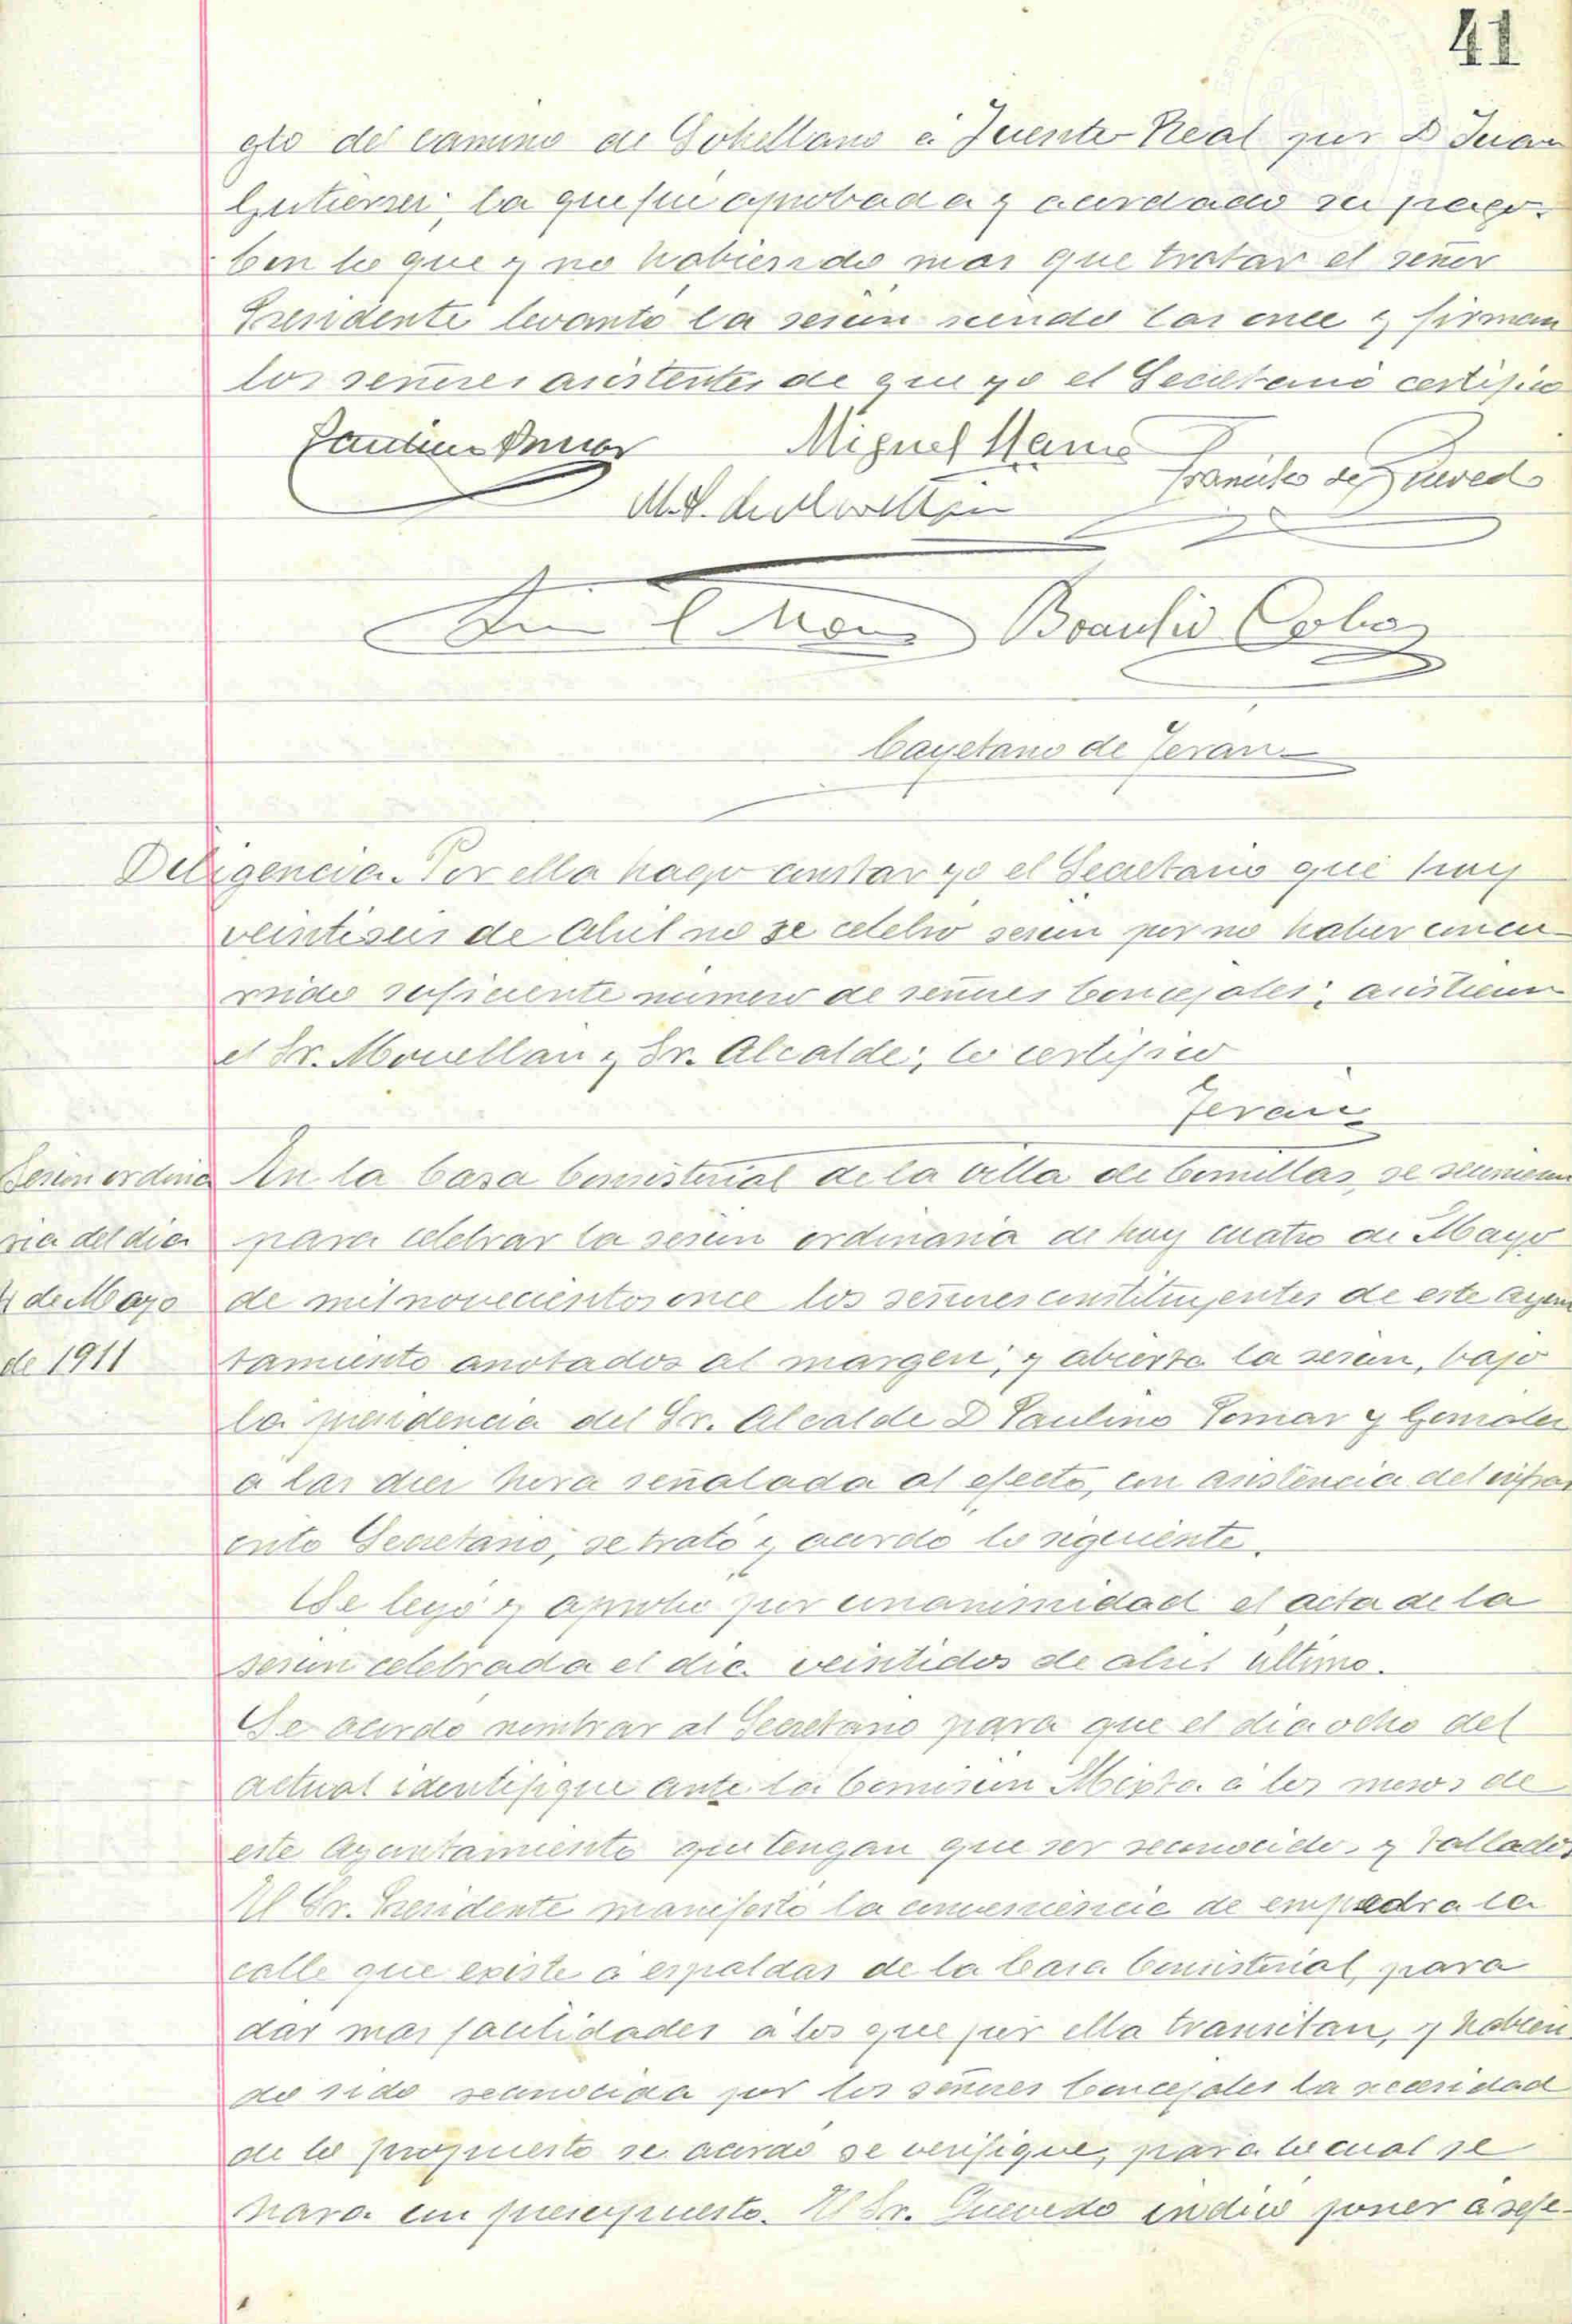 41
glo del camino de Sobellano á Fuente-Real por D Juan
Gutierrez; la que fue aprobada y acordado su pago.
Con lo que y no habiendo mas que tratar el señor
Presidente levantó la sesion siendo las once y firman
los señores asistentes de que yo el Secretario certifico
Paulino Pomar Miguel
Francisco de Quevedo
M. S. de Movellán
Braulio Cobo
Cayetano de Teran
Diligencia. Por ella hago constar yo el Secretario que hoy
veintiseis de Abril no se celebró sesion por no haber concu-
rrido suficiente número de señores Concejales; asistieron
el Sr. Movellan y Sr. Alcalde; lo certifico
Teran
Sesion ordina
ria del dia
4 de Mayo
de 1911
En la Casa Consistorial de la villa de Comillas, se reunieron
para celebrar la sesion ordinaria de hoy cuatro de Mayo
de mil novecientos once los señores constituyentes de este Ayun
tamiento anotados al margen; y abierta la sesion, bajo
la presidencia del Sr. Alcalde D Paulino Pomar y Gonzalez
a las diez hora señalada al efecto, con asistencia del infras
crito Secretario, se trató y acordó lo siguiente.
Se leyó y aprobó por unanimidad el acta de la
sesion celebrada el dia veintidos de abril último.
Se acordó nombrar al Secretario para que el dia ocho del
actual identifique ante la Comision Mixta á los mozos de
este Ayuntamiento que tengan que ser reconocidos y tallados
El Sr. Presidente manifestó la conveniencia de empedra la
calle que existe á espaldas de la Casa Consistorial, para
dar mas facilidades á los que por ella transitan, y habien
do sido reconocida por los señores Concejales la necesidad
de lo propuesto se acordó se verifique, para lo cual se
hara un presupuesto. El Sr. Quevedo indicó poner á